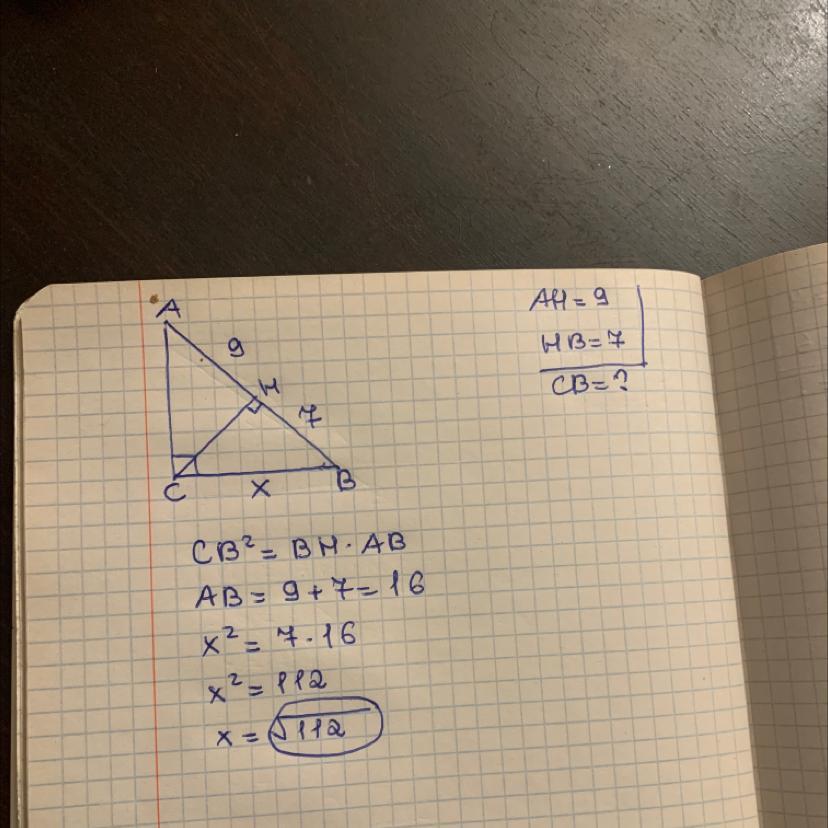 A
9
H
7
C
X
B
AH = 9
HB = 7
CB = ?
CB² = BH · AB
AB = 9 + 7 = 16
x² = 7 · 16
x² = 112
x = √112